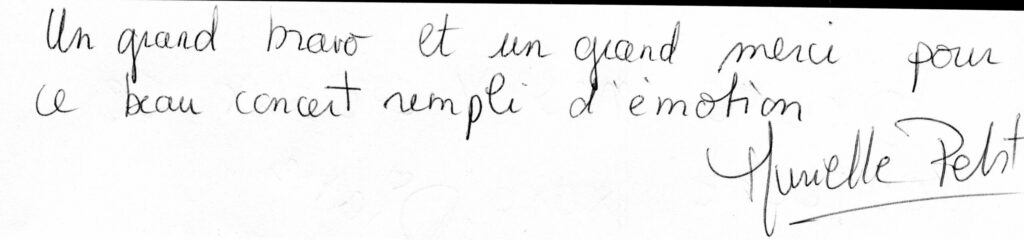 Un grand bravo et un grand merci pour
ce beau concert rempli d'émotion
Murielle